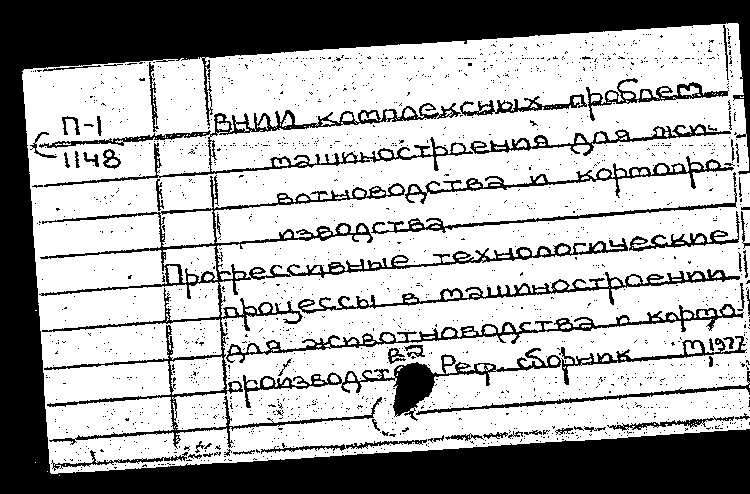 П-1
1148
ВНИИ комплексных проблем
машиностроения для жи-
вотноводства и кормопро-
изводства.
Прогрессивные технологические
процессы в машиностроении
для животноводства и кормо-
производства Реф. сборник М, 1977